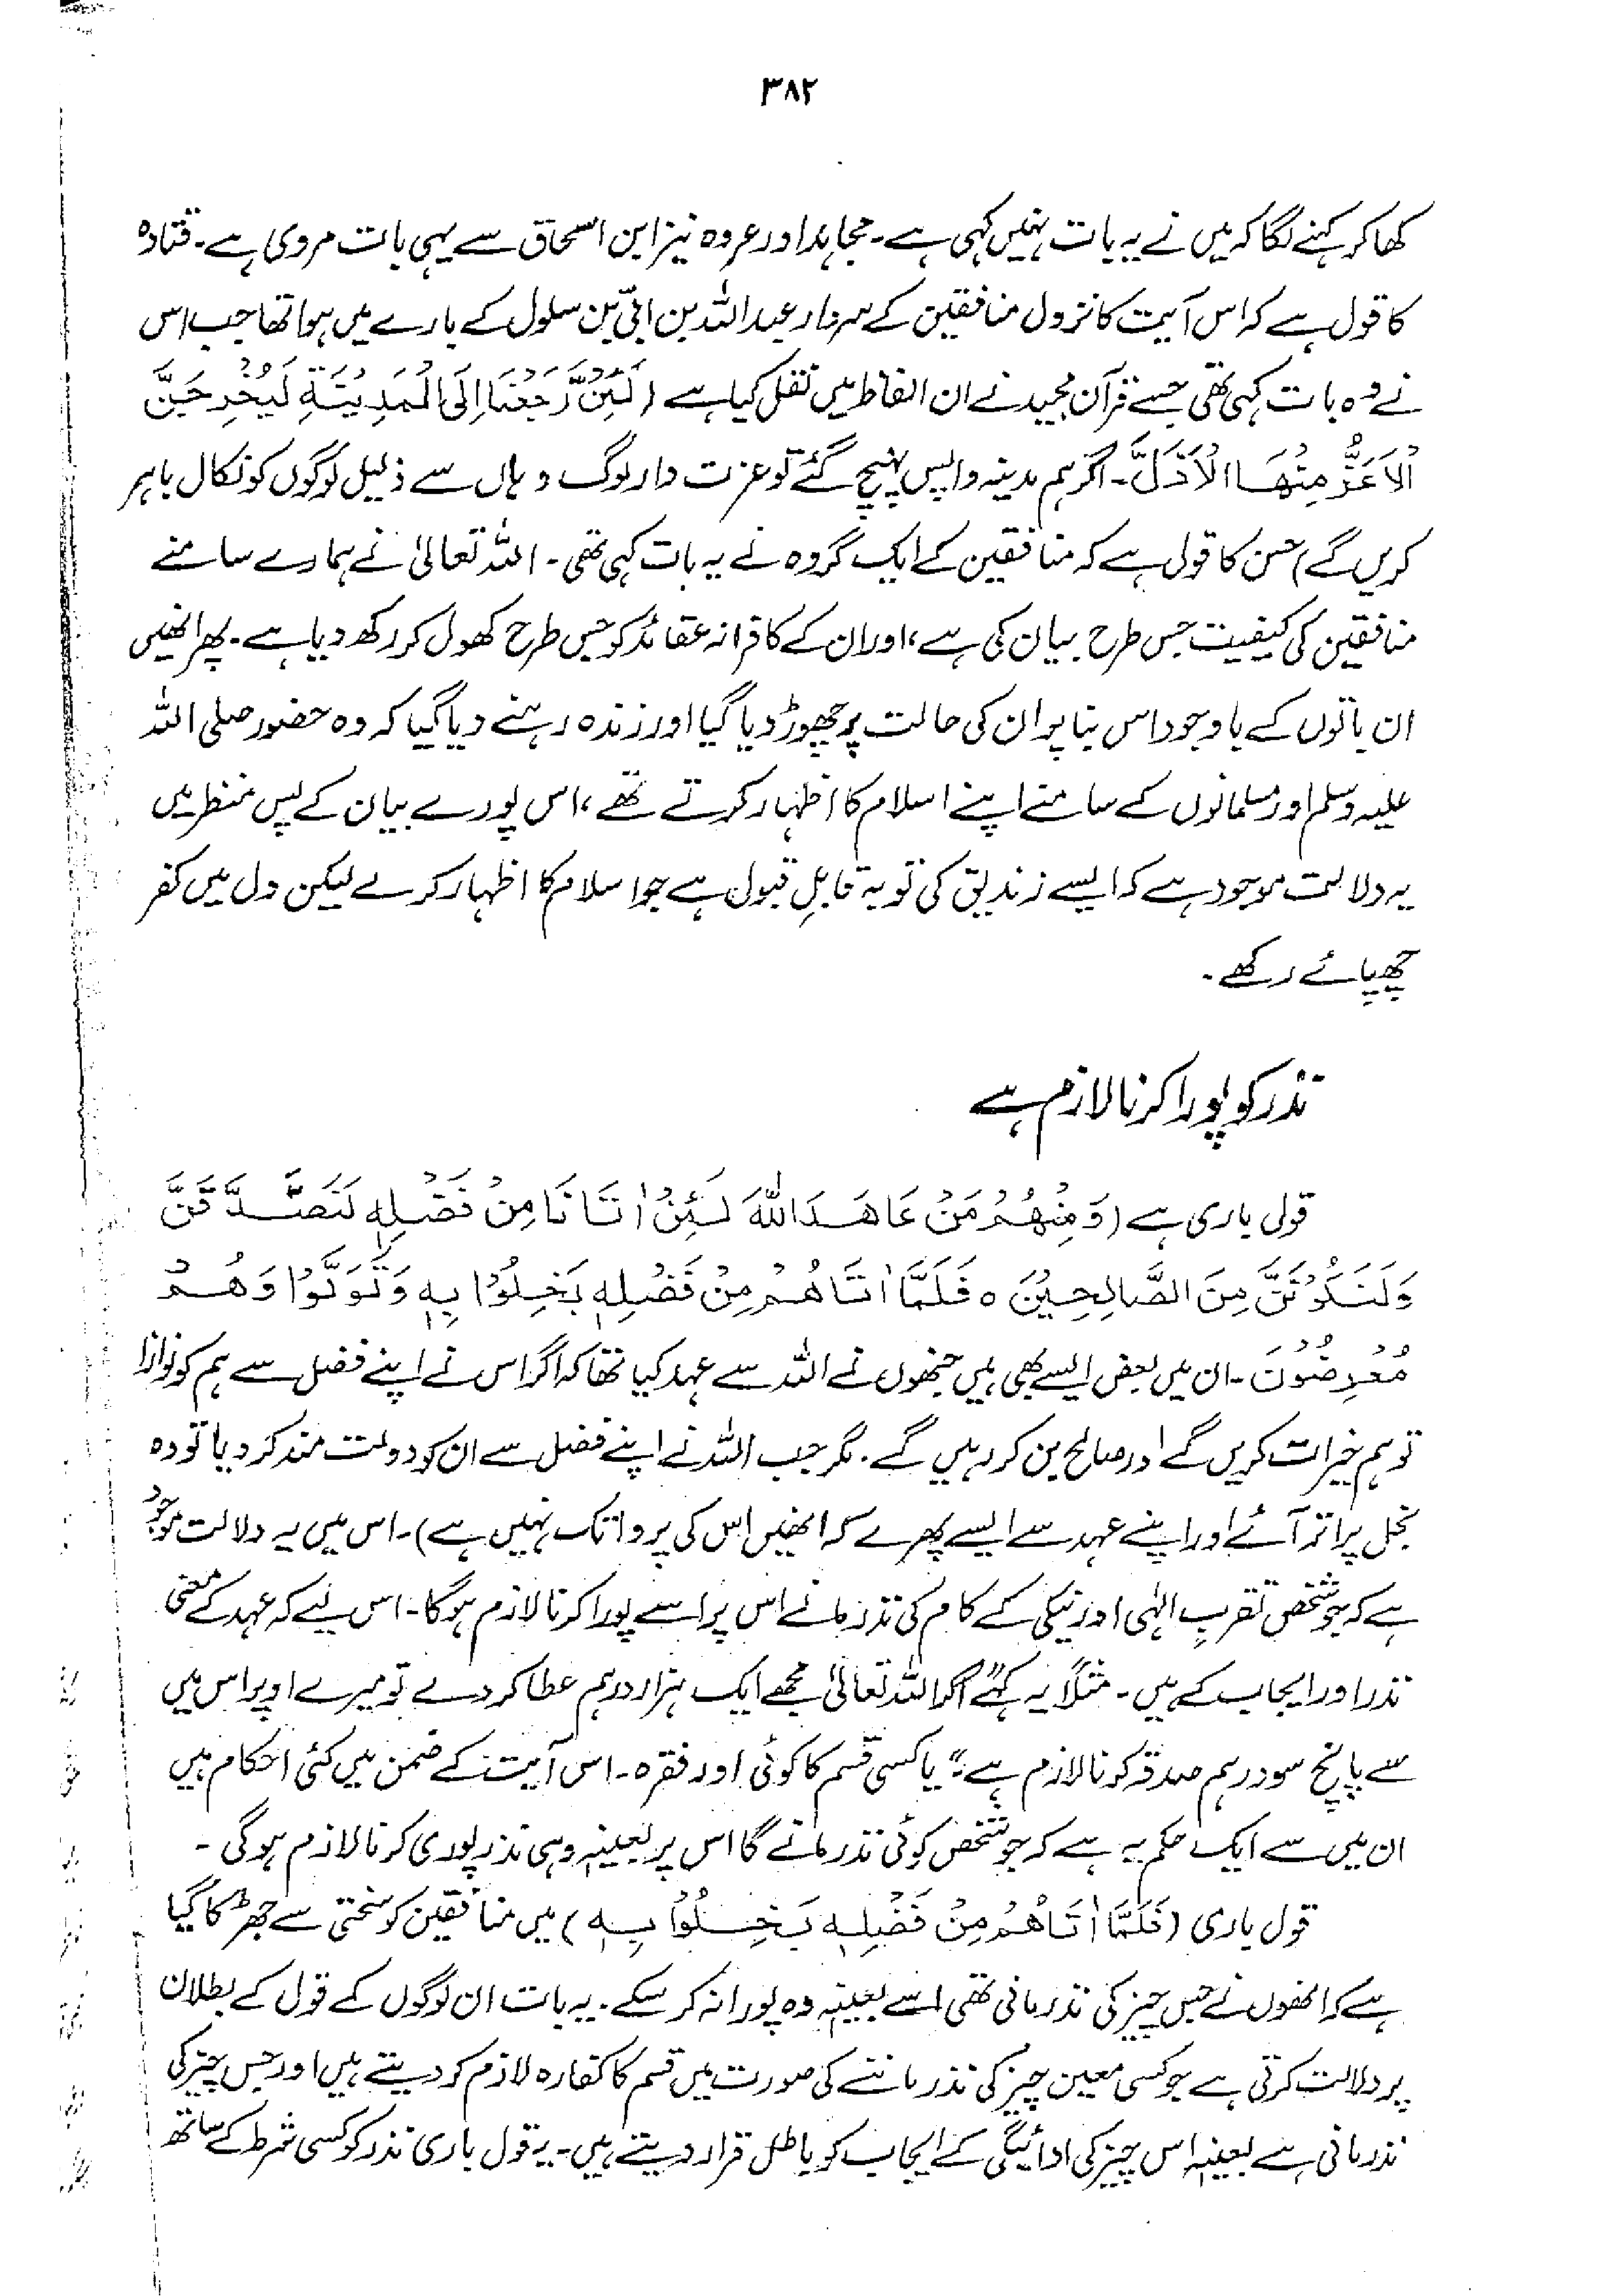 ۳۸۲
کھا کر کہنے لگا کہ میں نے یہ بات نہیں کہی ہے۔ مجاہد اور عروہ نیز ابن اسحاق سے یہی بات مروی ہے۔ قتادہ
کا قول ہے کہ اس آیت کا نزول منافقین کے سردار عبداللہ بن ابیّ بن سلول کے بارے میں ہوا تھا جب اس
نے وہ بات کہی تھی جسے قرآن مجید نے ان الفاظ میں نقل کیا ہے (لَئِنْ رَّجَعْنَا اِلَی الْمَدِیْنَةِ لَیُخْرِجَنَّ
الْاَعَزُّ مِنْهَا الْاَذَلَّ۔ اگر ہم مدینہ واپس پہنچ گئے تو عزت دار لوگ وہاں سے ذلیل لوگوں کو نکال باہر
کریں گے) حسن کا قول ہے کہ منافقین کے ایک گروہ نے یہ بات کہی تھی۔ اللہ تعالیٰ نے ہمارے سامنے
منافقین کی کیفیت جس طرح بیان کی ہے، اور ان کے کافرانہ عقائد کو جس طرح کھول کر رکھ دیا ہے۔ پھر انھیں
ان باتوں کے باوجود اس بنا پر ان کی حالت پر چھوڑ دیا گیا اور زندہ رہنے دیا گیا کہ وہ حضور صلی اللہ
علیہ وسلم اور مسلمانوں کے سامنے اپنے اسلام کا اظہار کرتے تھے، اس پورے بیان کے پس منظر میں
یہ دلالت موجود ہے کہ ایسے زندیق کی توبہ قابلِ قبول ہے جو اسلام کا اظہار کرے لیکن دل میں کفر
چھپائے رکھے۔
نذر کو پورا کرنا لازم ہے
قول باری ہے (وَمِنْهُمْ مَنْ عَاهَدَ اللّٰهَ لَئِنْ اٰتَانَا مِنْ فَضْلِهٖ لَنَصَّدَّقَنَّ
وَلَنَكُوْنَنَّ مِنَ الصَّالِحِیْنَ ہ فَلَمَّا اٰتَاهُمْ مِنْ فَضْلِهٖ بَخِلُوْا بِهٖ وَتَوَلَّوْا وَهُمْ
مُعْرِضُوْنَ۔ ان میں بعض ایسے بھی ہیں جنھوں نے اللہ سے عہد کیا تھا کہ اگر اس نے اپنے فضل سے ہم کو نوازا
تو ہم خیرات کریں گے اور صالح بن کر رہیں گے۔ مگر جب اللہ نے اپنے فضل سے ان کو دولت مند کر دیا تو وہ
بخل پر اتر آئے اور اپنے عہد سے ایسے پھرے کہ انھیں اس کی پروا تک نہیں ہے)۔ اس میں یہ دلالت موجود
ہے کہ جو شخص تقربِ الٰہی اور نیکی کے کام کی نذر مانے اس پر اسے پورا کرنا لازم ہوگا۔ اس لیے کہ عہد کے معنی
نذر اور ایجاب کے ہیں۔ مثلاً یہ کہے "اگر اللہ تعالیٰ مجھے ایک ہزار درہم عطا کر دے تو میرے اوپر اس میں
سے پانچ سو درہم صدقہ کرنا لازم ہے" یا کسی قسم کا کوئی اور فقرہ۔ اس آیت کے ضمن میں کئی احکام ہیں
ان میں سے ایک حکم یہ ہے کہ جو شخص کوئی نذر مانے گا اس پر بعینہٖ وہی نذر پوری کرنا لازم ہوگی۔
قول باری (فَلَمَّا اٰتَاهُمْ مِنْ فَضْلِهٖ بَخِلُوْا بِهٖ) میں منافقین کو سختی سے جھڑکا گیا
ہے کہ انھوں نے جس چیز کی نذر مانی تھی اسے بعینہٖ وہ پورا نہ کر سکے۔ یہ بات ان لوگوں کے قول کے بطلان
پر دلالت کرتی ہے جو کسی معین چیز کی نذر ماننے کی صورت میں قسم کا کفارہ لازم کر دیتے ہیں اور جس چیز کی
نذر مانی ہے بعینہٖ اس چیز کی ادائیگی کے ایجاب کو باطل قرار دیتے ہیں۔ یہ قول باری نذر کو کسی شرط کے ساتھ